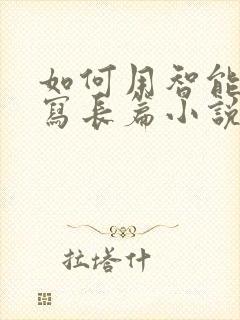 如何用智能
寫長篇小說
拉塔什